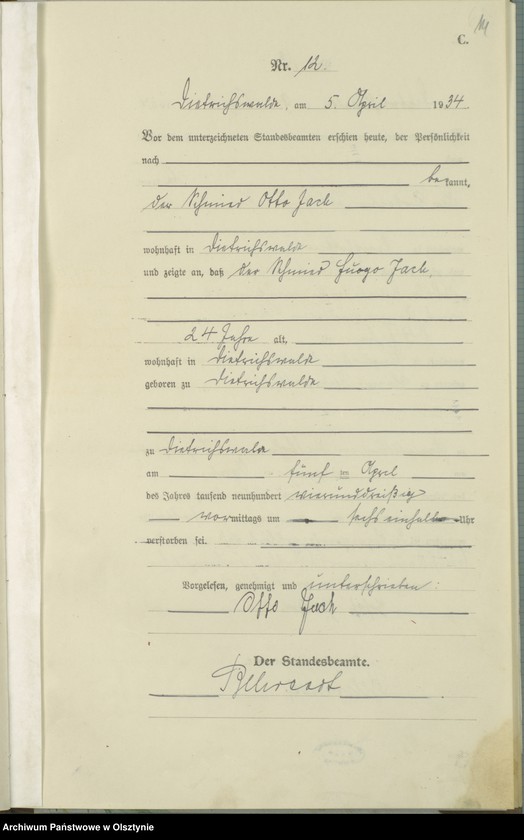 C.
Nr. 12.
Dietrichswalde, am 5. April 1934
Vor dem unterzeichneten Standesbeamten erschien heute, der Persönlichkeit
nach
bekannt,
der Schmied Otto Jack
wohnhaft in Dietrichswalde
und zeigte an, daß der Schmied Hugo Jack,
24 Jahre alt,
wohnhaft in Dietrichswalde
geboren zu Dietrichswalde
zu Dietrichswalde
am fünf ten April
des Jahres tausend neunhundert vierunddreißig
vormittags um sechs einhalb Uhr
verstorben sei.
Vorgelesen, genehmigt und unterschrieben:
Otto Jack
Der Standesbeamte.
Archiwum Państwowe w Olsztynie